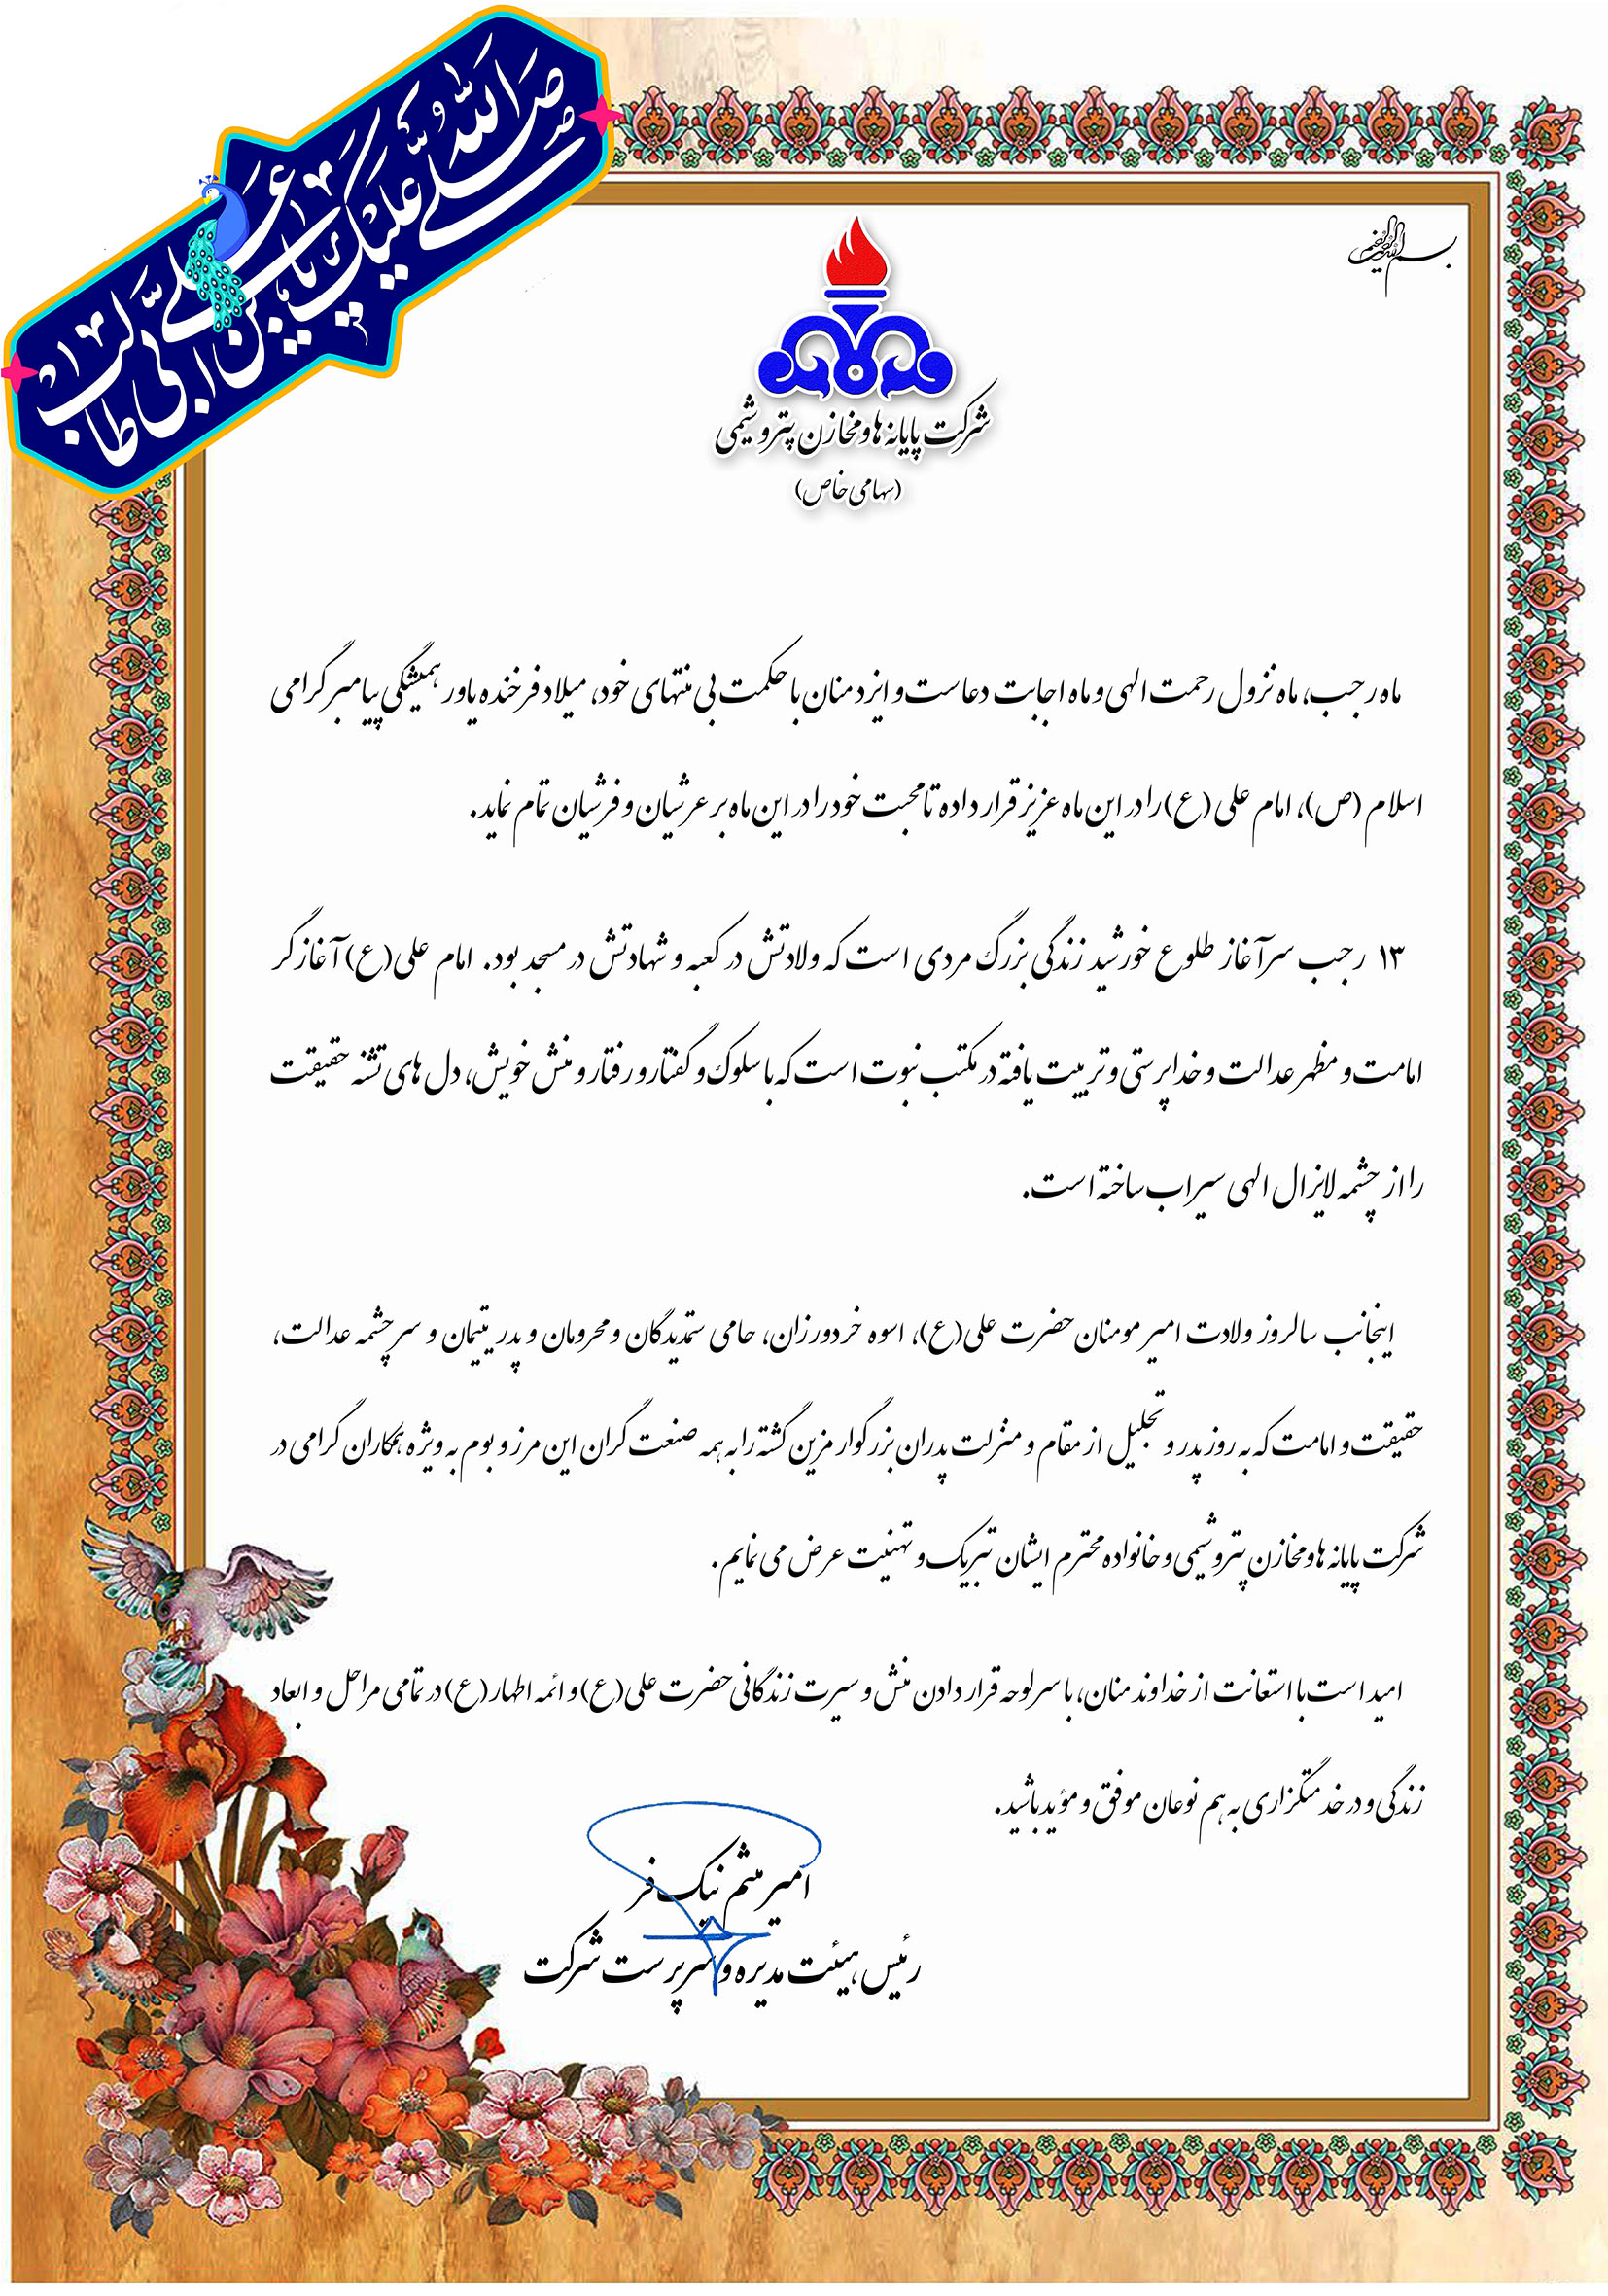 صلی الله علیک یا علی بن ابی طالب
بسم الله الرحمن الرحیم
شرکت پایانه ها و مخازن پتروشیمی
(سهامی خاص)
ماه رجب، ماه نزول رحمت الهی و ماه اجابت دعاست و ایزد منان با حکمت بی منتهای خود، میلاد فرخنده یاور همیشگی پیامبر گرامی
اسلام (ص)، امام علی (ع) را در این ماه عزیز قرار داده تا محبت خود را در این ماه بر عرشیان و فرشیان تمام نماید.
۱۳ رجب سرآغاز طلوع خورشید زندگی بزرگ مردی است که ولادتش در کعبه و شهادتش در مسجد بود. امام علی(ع) آغازگر
امامت و مظهر عدالت و خداپرستی و تربیت یافته در مکتب نبوت است که با سلوک و گفتار و رفتار و منش خویش، دل های تشنه حقیقت
را از چشمه لایزال الهی سیراب ساخته است.
اینجانب سالروز ولادت امیر مومنان حضرت علی(ع)، اسوه خردورزان، حامی ستمدیدگان و محرومان و پدر یتیمان و سرچشمه عدالت،
حقیقت و امامت که به روز پدر و تجلیل از مقام و منزلت پدران بزرگوار مزین گشته را به همه صنعت گران این مرز و بوم به ویژه همکاران گرامی در
شرکت پایانه ها و مخازن پتروشیمی و خانواده محترم ایشان تبریک و تهنیت عرض می نمایم.
امید است با استعانت از خداوند منان، با سرلوحه قرار دادن منش و سیرت زندگانی حضرت علی(ع) و ائمه اطهار(ع) در تمامی مراحل و ابعاد
زندگی و در خدمتگزاری به هم نوعان موفق و مؤید باشید.
امیر میثم نیک فر
رئیس هیئت مدیره و سرپرست شرکت